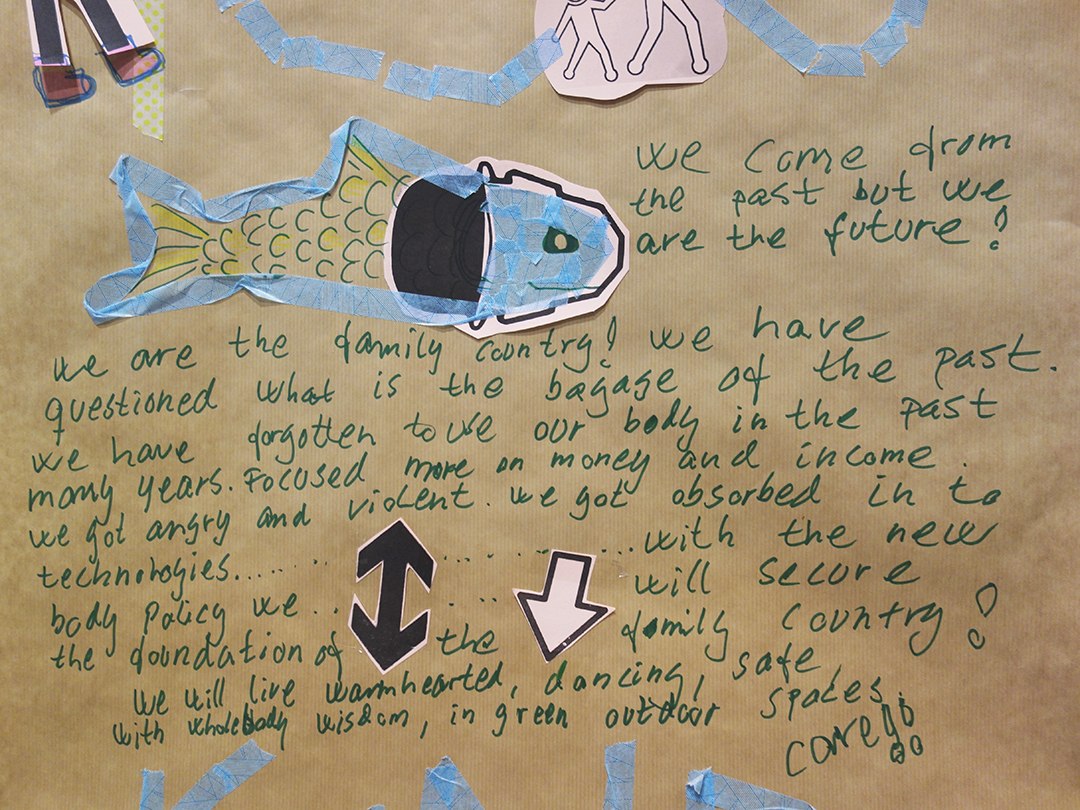 we come from
the past but we
are the future!
we are the family country! we have
questioned what is the bagage of the past.
we have forgotten to use our body in the past
many years. Focused more on money and income.
we got angry and violent. we got absorbed in to
technologies............with the new
body policy we.. ... will secure
the foundation of the family country!
we will live warmhearted, dancing, safe
with wholebody wisdom, in green outdoor spaces.